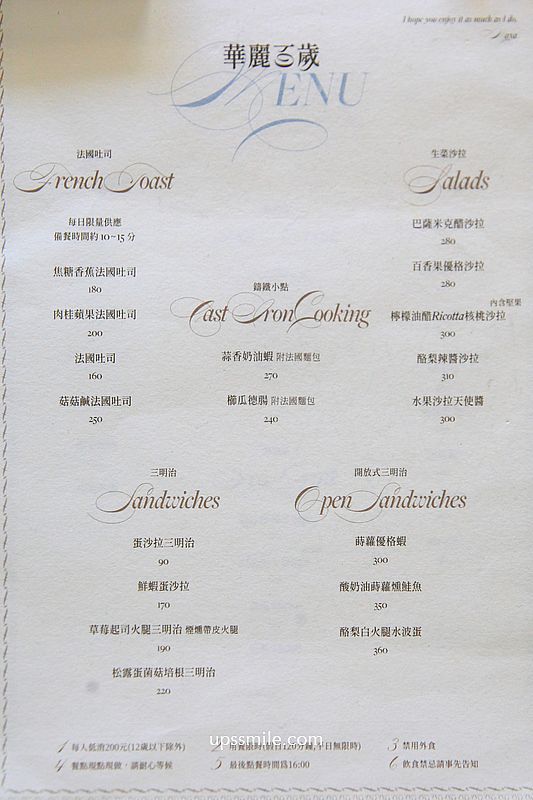 I hope you enjoy it as much as I do.
華麗百歲
MENU
法國吐司
French Toast
每日限量供應
備餐時間約 10~15 分
焦糖香蕉法國吐司
180
肉桂蘋果法國吐司
200
法國吐司
160
菇菇鹹法國吐司
250
鑄鐵小點
Cast Iron Cooking
蒜香奶油蝦 附法國麵包
270
櫛瓜德腸 附法國麵包
240
生菜沙拉
Salads
巴薩米克醋沙拉
280
百香果優格沙拉
280
內含堅果
檸檬油醋Ricotta核桃沙拉
300
酪梨辣醬沙拉
310
水果沙拉天使醬
300
三明治
Sandwiches
蛋沙拉三明治
90
鮮蝦蛋沙拉
170
草莓起司火腿三明治 煙燻帶皮火腿
190
松露蛋菌菇培根三明治
220
開放式三明治
Open Sandwiches
蒔蘿優格蝦
300
酸奶油蒔蘿燻鮭魚
350
酪梨白火腿水波蛋
360
1 每人低消200元(12歲以下除外)
2 用餐限時(假日120分鐘,平日無限時)
3 禁用外食
4 餐點現點現做，請耐心等候
5 最後點餐時間為16:00
6 飲食禁忌請事先告知
upssmile.com